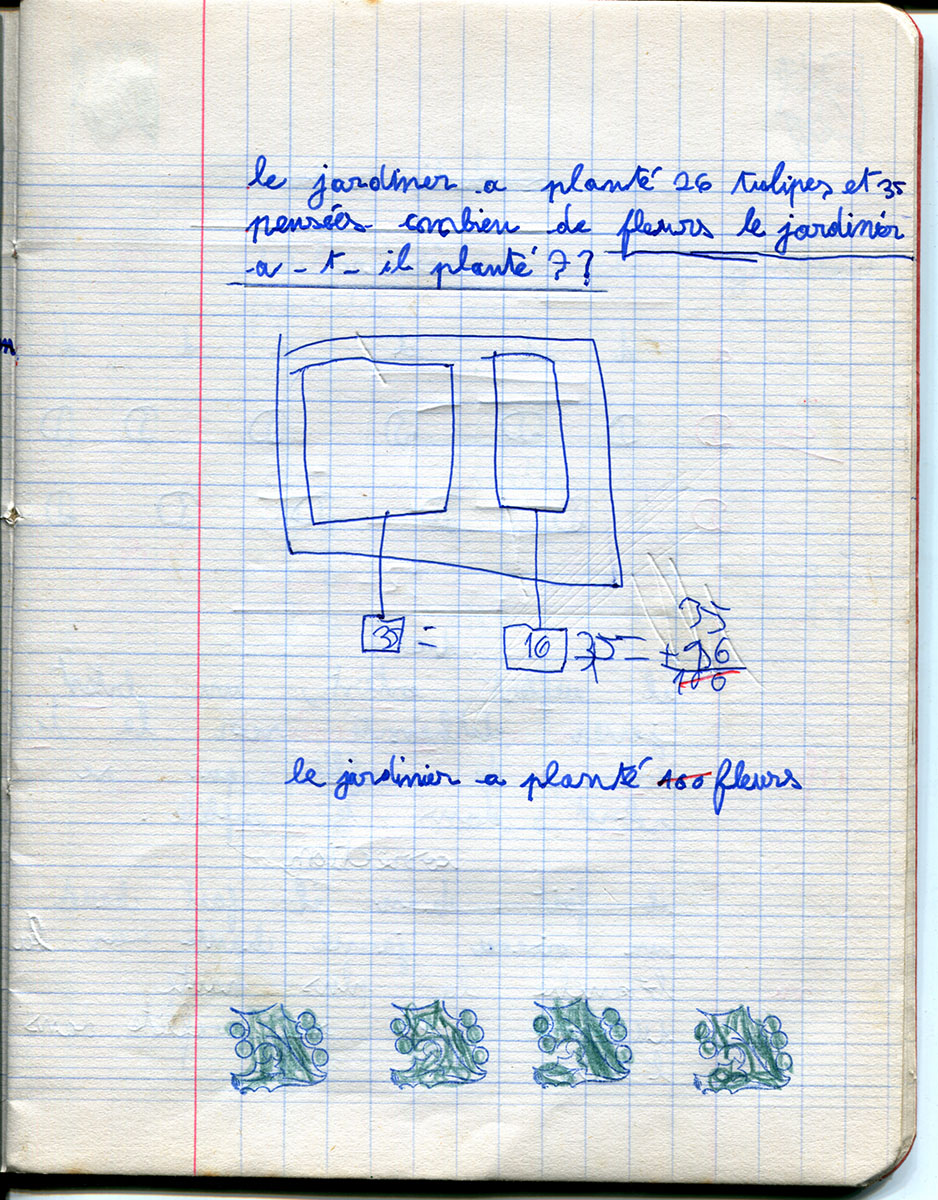 le jardiner a planté 26 tulipes et 35
pensées combien de fleurs le jardiner
a-t-il planté ??
35 =
16
35 =
35
+
106
le jardinier a planté 100 fleurs